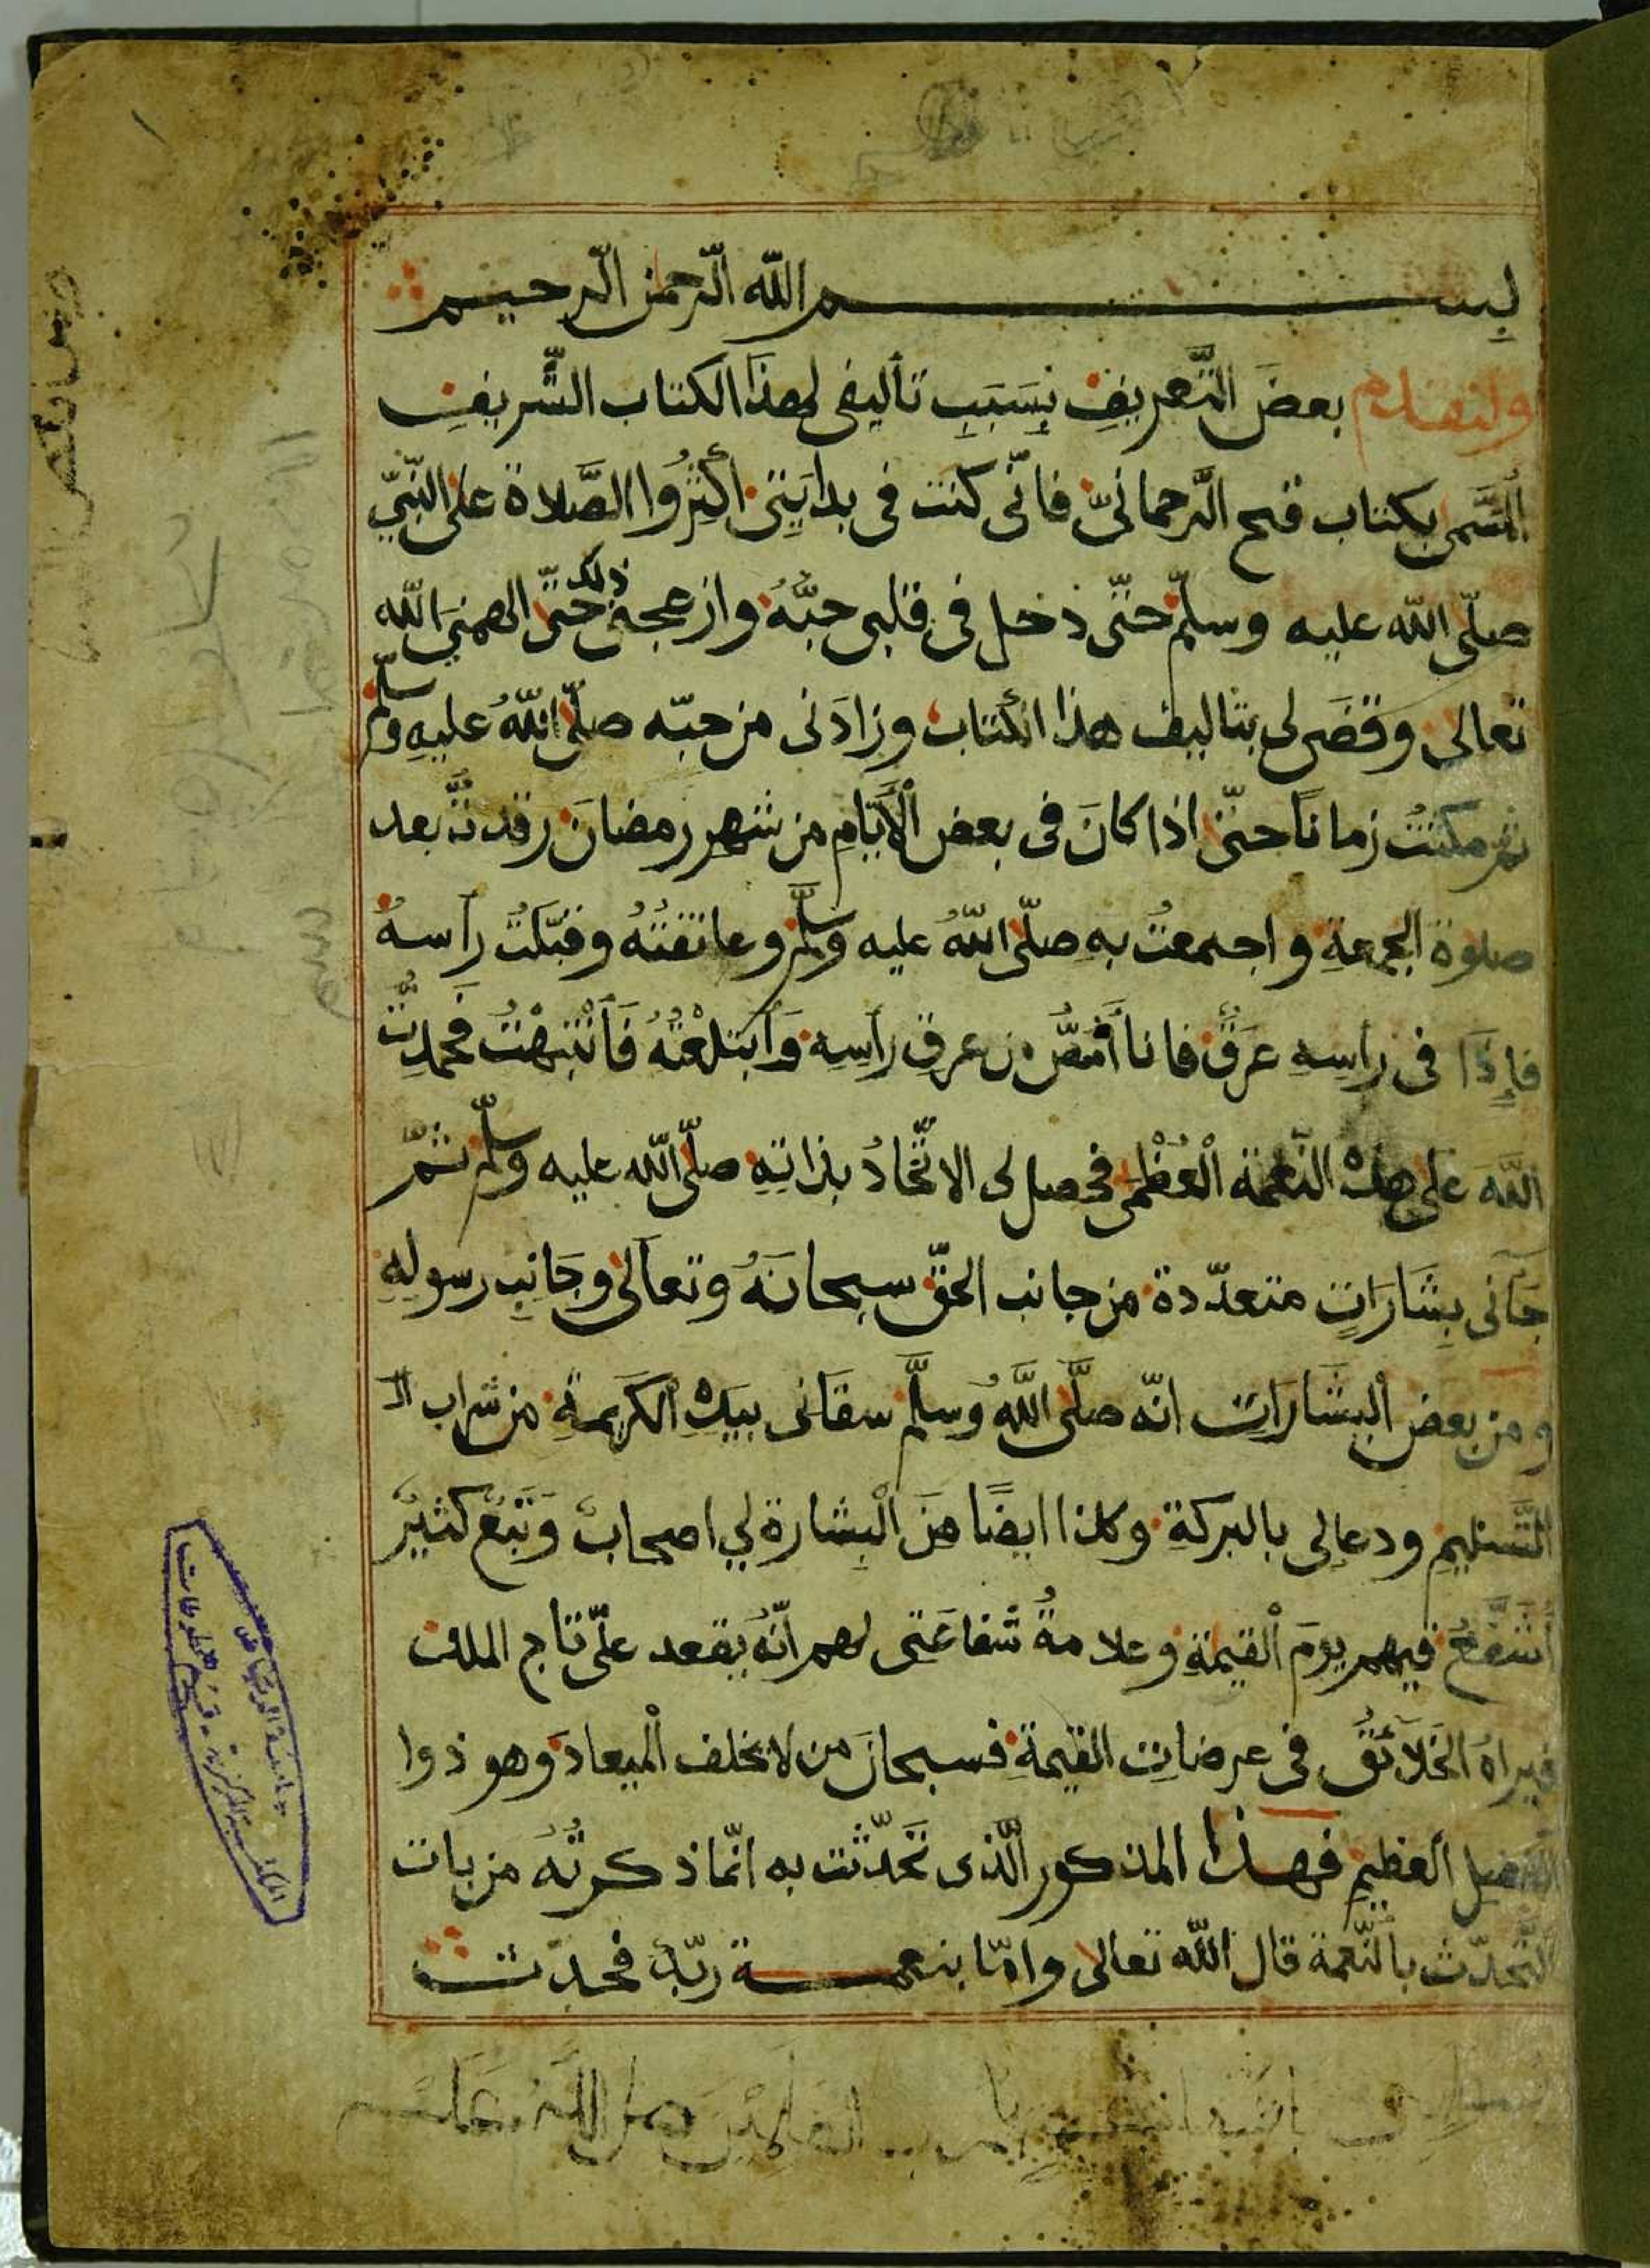 بسم الله الرحمن الرحيم
ولنقدم بعضَ التَّعريفِ بِسَبَبِ تأليفى لهذا الكتاب الشَّريفِ
المسَّمى بكتاب فتح الرحمانىّ فانّى كنت فى بدايَتِى أكثِرُوا الصَّلاة على النّبىّ
صلّى الله عليه وسلّم حتّى دخل فى قلبى حبُّهُ وازعجنى ذلك حتّى الهمنِىَ الله
تعالى وقضَى لى بتاليف هذا الكتاب وزادَنى من حبّه صلّى اللهُ عليهِ وسلّم
ثم مكثتُ زمانًا حتّى اذا كانَ فى بعض الأيّامِ من شهرِ رمضانَ رقدتُ بعد
صلوة الجمعةِ واجتمعتُ بهِ صلّى اللهُ عليه وسلَّم وعانقتُهُ وقبّلتُ رأسهُ
فإِذَا فى رأسِهِ عرَقٌ فانا أَمُصُّ من عرقِ رأسِهِ وَأَبتلعْتُهُ فَأنْتَبَهْتُ فَحمدتُّ
اللهَ على هذه النّعمة الْعُظْمى فحصل لى الاتّحادُ بذاتِهِ صلّى الله عليه وسلّم ثمّ
جآنى بِشَارَاتٍ متعدّدة من جانب الحقّ سبحانَهُ وتعالى وجَانِبِ رسولِهِ
ومن بعض البشَارَات انّه صلَّى اللَّهُ وَسلَّم سقَانى بيدِهِ الكَرِيمةِ من شراب ال
التَّسنيمِ ودعالى بالبركةِ وكذا ايضًا منَ الْبِشارة لي اصحابٌ وَتَبَعٌ كثيرٌ
أشَفَّعُ فيهم يومَ القيمةِ وعلامةُ شفاعَتى لهم انّهُ يقعد علىّ تاج الملك
فيراهُ الخَلآئقُ فى عرضاتِ القيمةِ فسبحانَ من لا يخلف الْميعادَ وهو ذوا
الفضل العظيمِ فهذا المذكور الَّذى تَحدّثت به انّما ذكرتُهُ من باب
التَّحدّث بالنّعمة قال الله تعالى وامّا بنعمة ربّك فحدّث